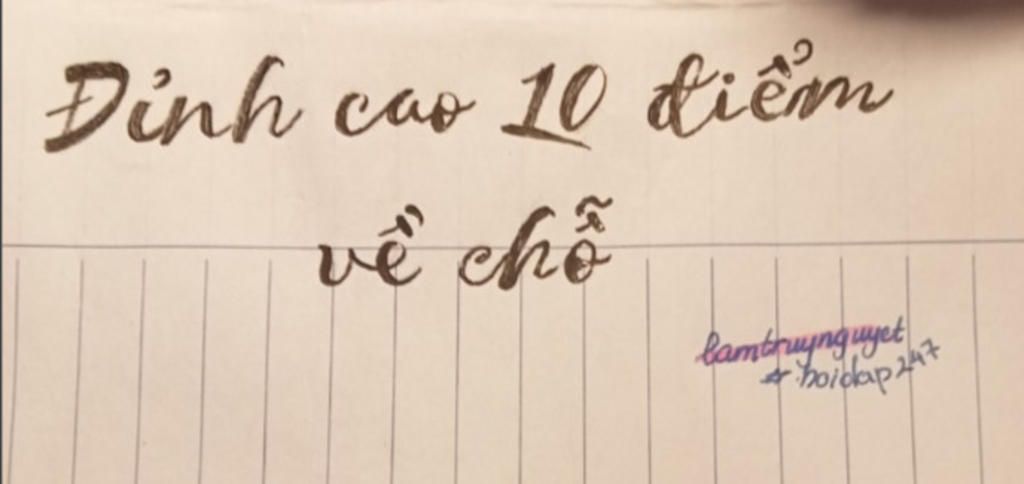 Đỉnh cao 10 điểm
về chỗ
lamtruynguyet
hoidap247